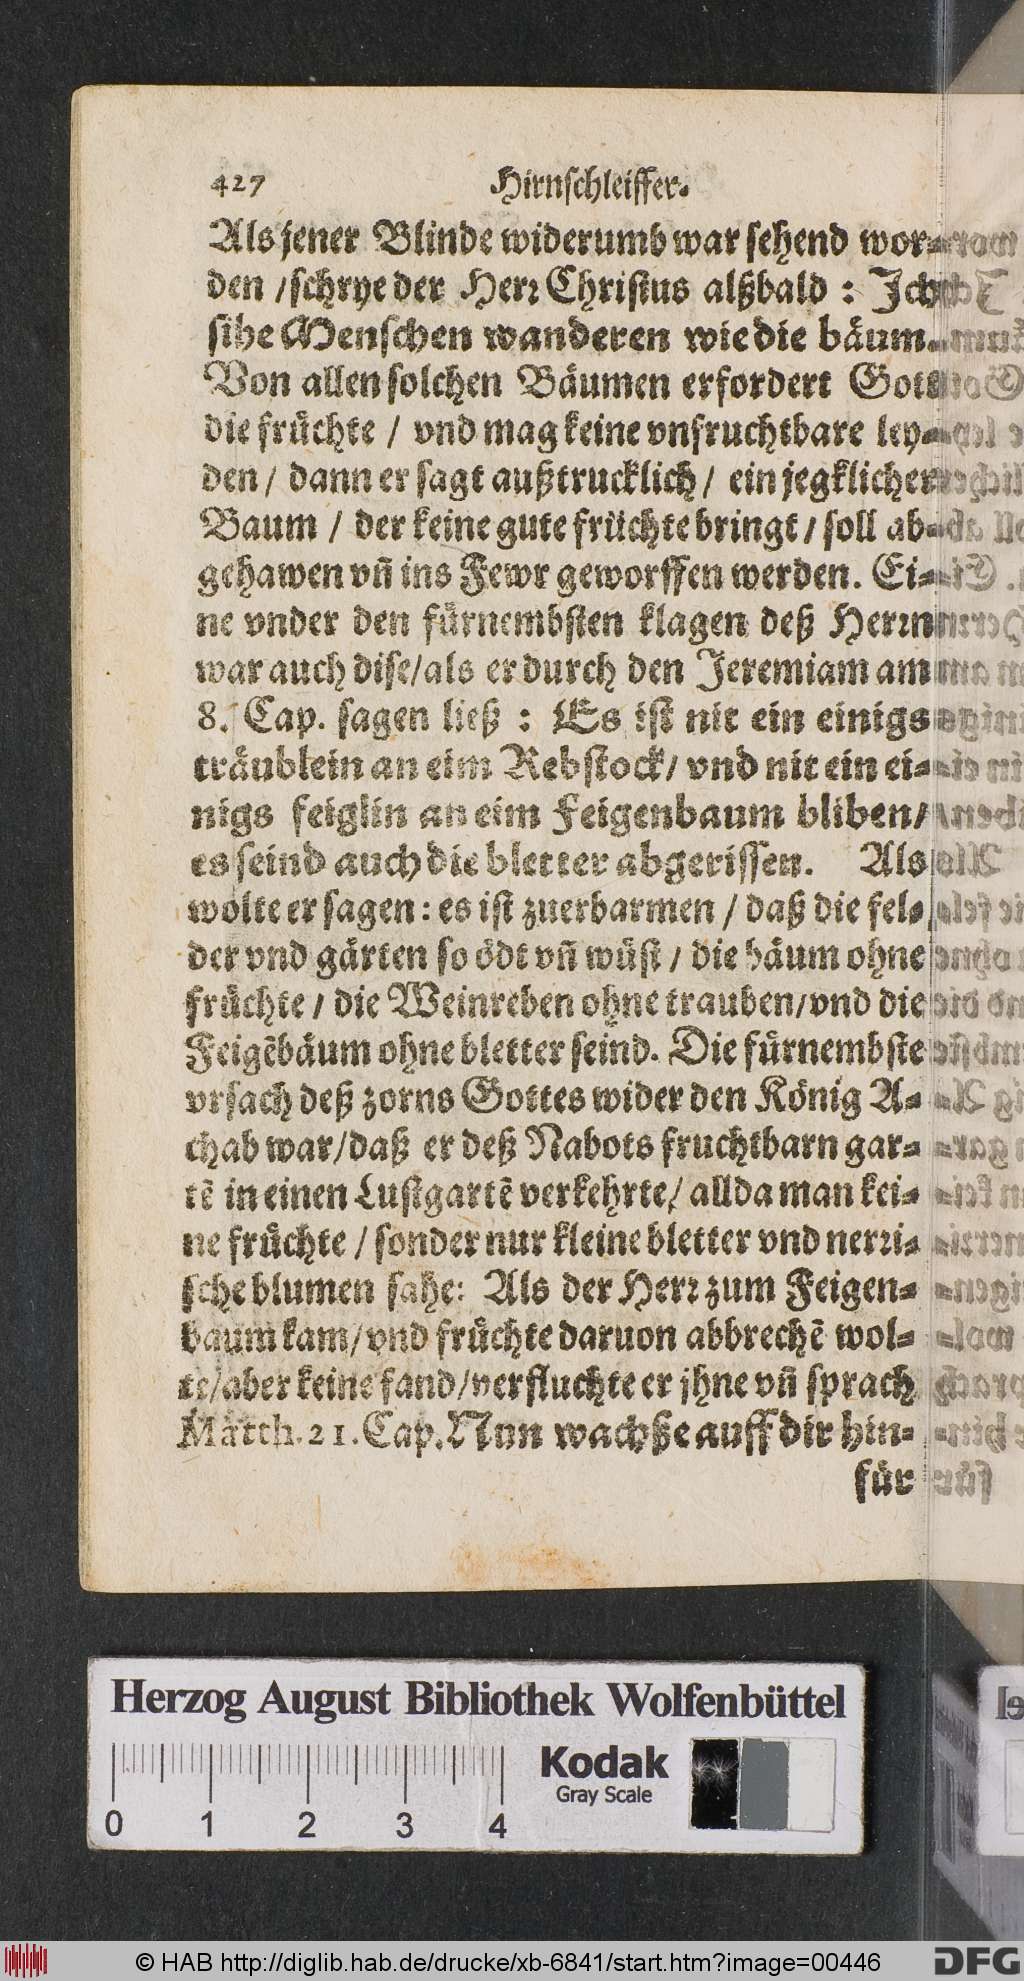 427 Hirnschleiffer.
Als jener Blinde widerumb war sehend wor-
den / schrye der Herr Christus alßbald : Ich
sihe Menschen wanderen wie die bäum.
Von allen solchen Bäumen erfordert Gott
die früchte / vnd mag keine vnfruchtbare ley-
den / dann er sagt außtrucklich / ein jegklicher
Baum / der keine gute früchte bringt / soll ab-
gehawen vñ ins Fewr geworffen werden. Ei-
ne vnder den fürnembsten klagen deß Herrn
war auch dise / als er durch den Jeremiam am
8. Cap. sagen ließ : Es ist nit ein einigs
träublein an eim Rebstock / vnd nit ein ei-
nigs feiglin an eim Feigenbaum bliben /
es seind auch die bletter abgerissen. Als
wolte er sagen : es ist zuerbarmen / daß die fel-
der vnd gärten so ödt vñ wüst / die bäum ohne
früchte / die Weinreben ohne trauben / vnd die
Feigẽbäum ohne bletter seind. Die fürnembste
vrsach deß zorns Gottes wider den König A-
chab war / daß er deß Nabots fruchtbarn gar-
tẽ in einen Lustgartẽ verkehrte / allda man kei-
ne früchte / sonder nur kleine bletter vnd nerri-
sche blumen sahe: Als der Herr zum Feigen-
baum kam / vnd früchte daruon abbrechẽ wol-
te / aber keine fand / verfluchte er jhne vñ sprach
Matth. 21. Cap. Nun wachße auff dir hin-
für
Herzog August Bibliothek Wolfenbüttel
Kodak
Gray Scale
0 1 2 3 4
© HAB http://diglib.hab.de/drucke/xb-6841/start.htm?image=00446
DFG